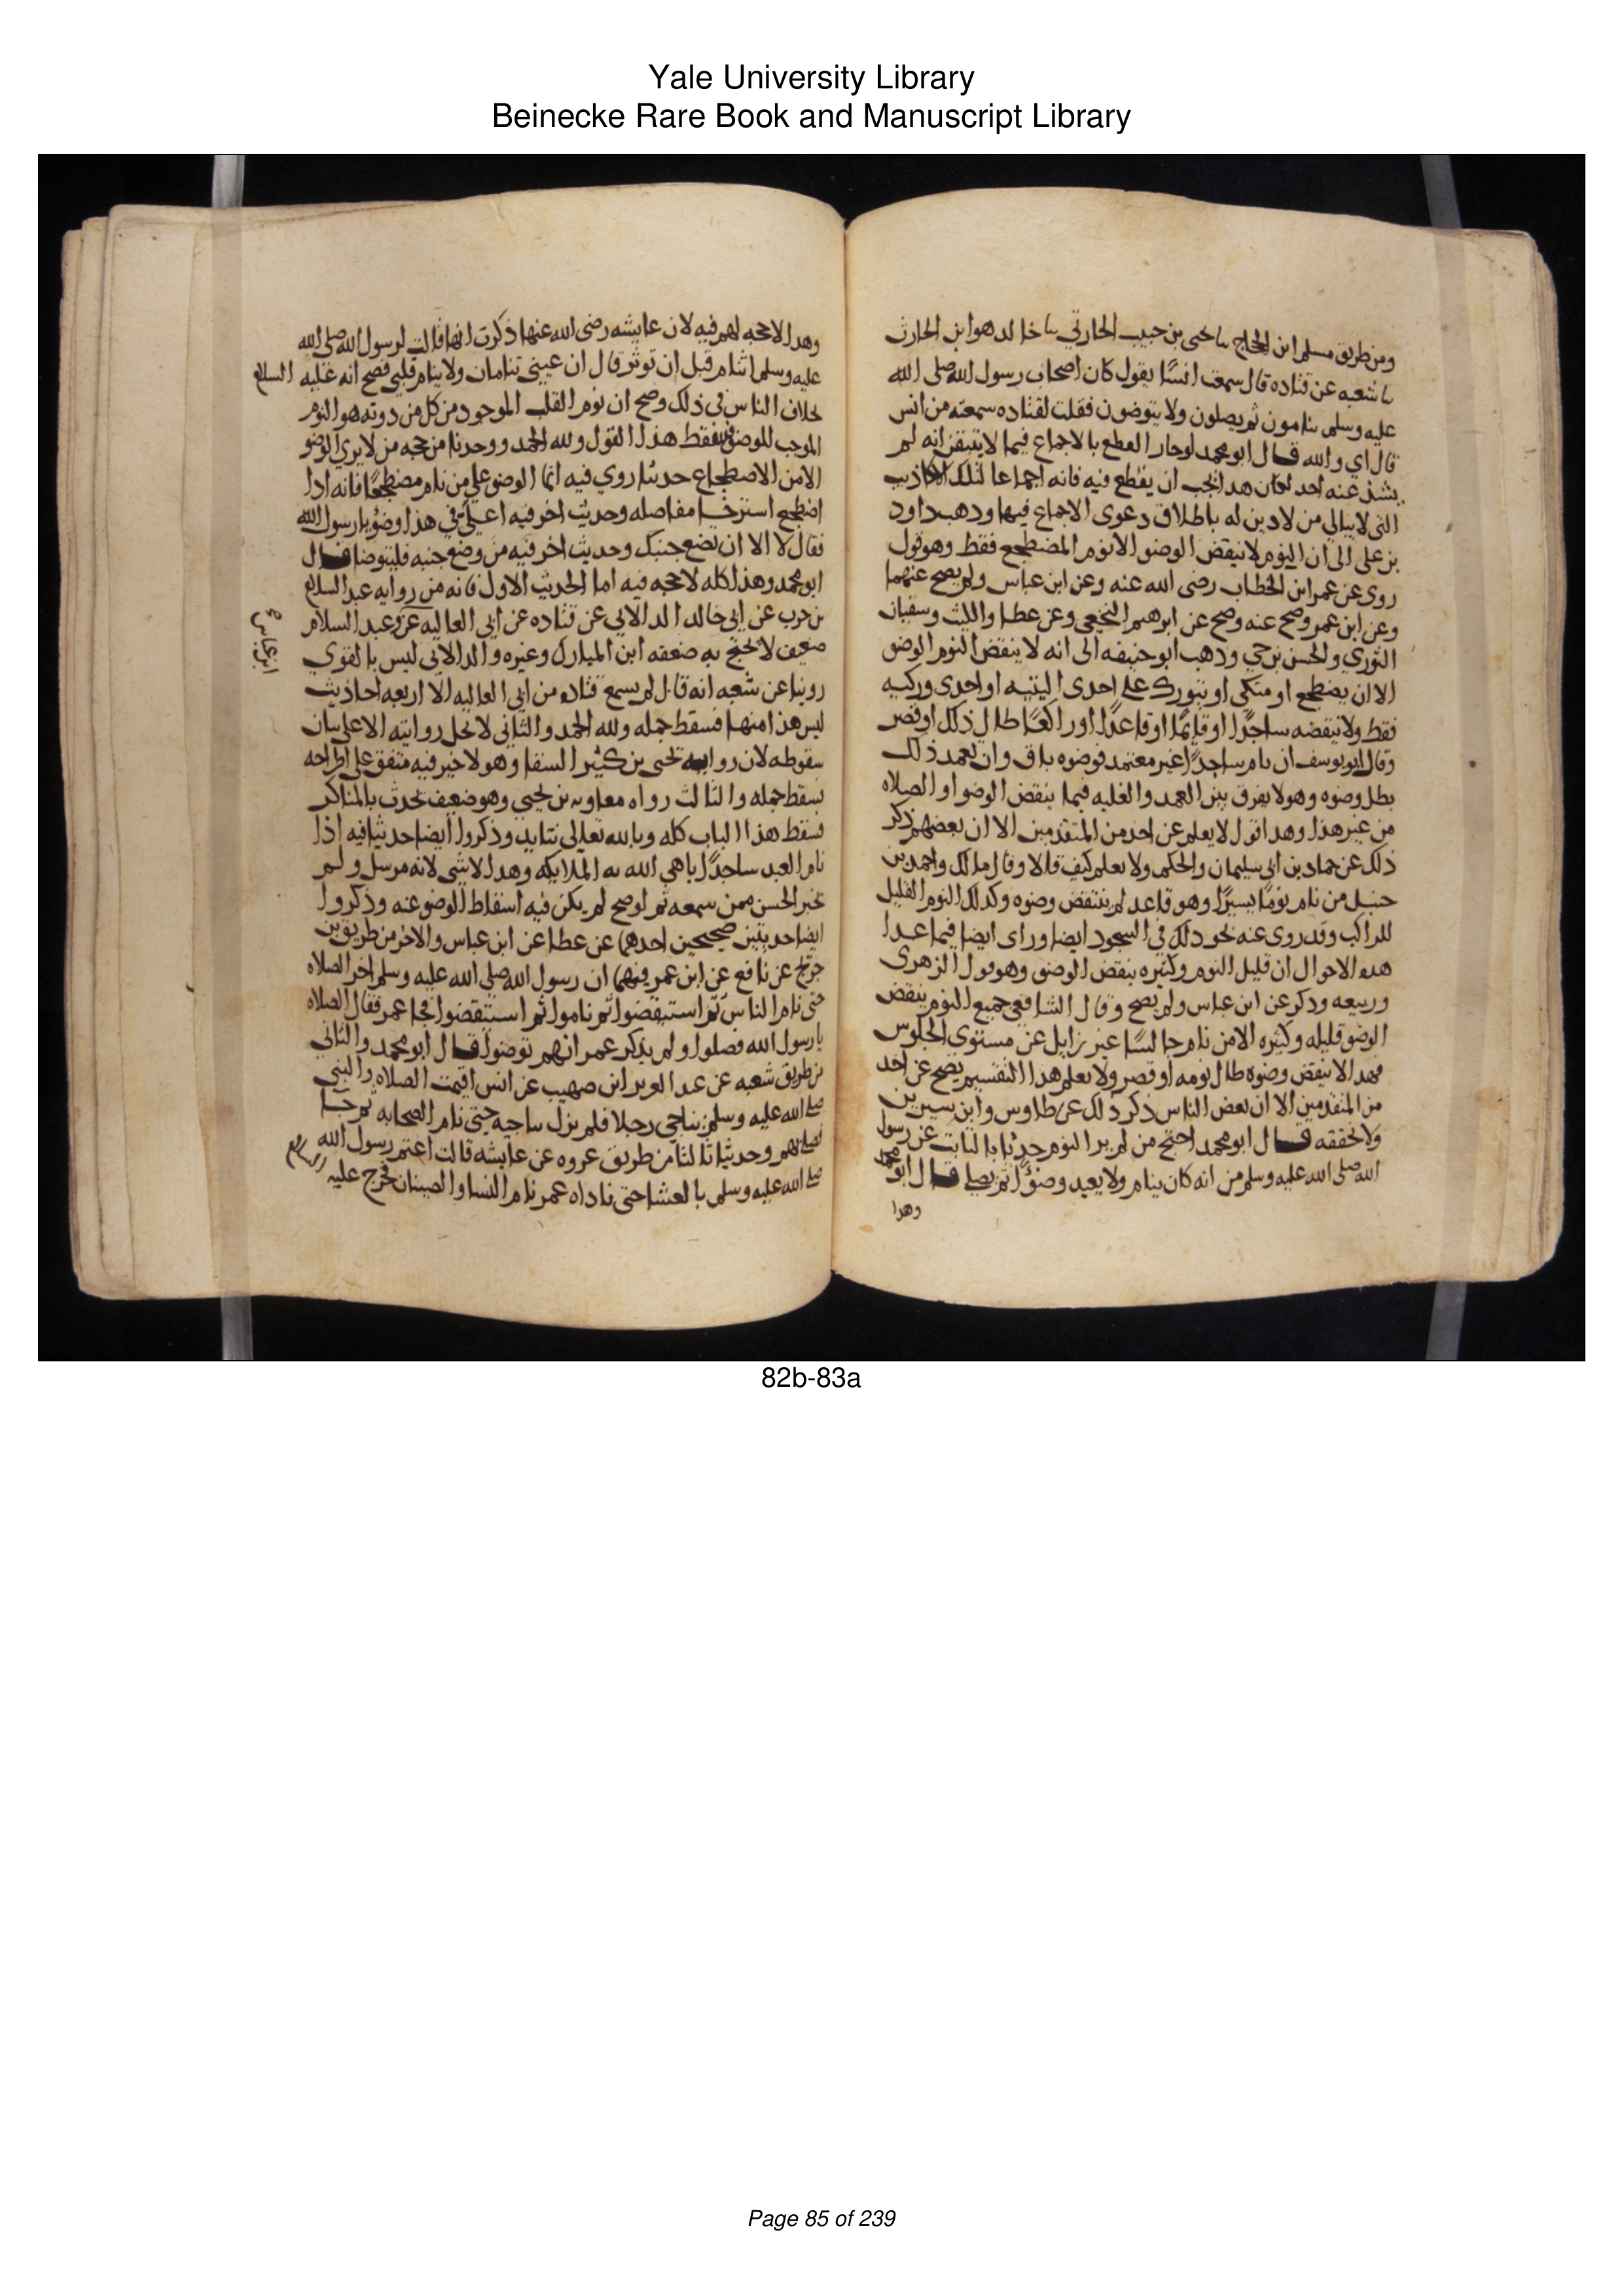 Yale University Library
Beinecke Rare Book and Manuscript Library
ومن طريق مسلم ابن الحجاج نا يحيى بن حبيب الحارثي نا خالد هو ابن الحارث
نا شعبه عن قتاده قال سمعت انسًا يقول كان اصحاب رسول الله صلى الله
عليه وسلم ينامون ثم يصلون ولا يتوضون فقلت لقتاده سمعته من انس
قال اي والله قال ابو محمد لو جاز القطع بالاجماع فيما لا يتيقن انه لم
يشذ عنه احد لكان هذا يجب ان يقطع فيه بانه اجماعا لتلك الاكاذيب
التي لا يبالي من لا دين له باطلاق دعوى الاجماع فيها وذهب داود
بن على الى ان النوم لا ينقض الوضو الا نوم المضطجع فقط وهو قول
روى عن عمر ابن الخطاب رضى الله عنه وعن ابن عباس ولم يصح عنهما
وعن ابن عمر وصح عنه وصح عن ابرهيم النخعي وعن عطا والليث وسفيان
الثوري والحسن بن حي وذهب ابو حنيفه الى انه لا ينقض النوم الوضو
الا ان يضطجع او متكي او يتورك على احدى اليتيه او احدى وركيه
فقط ولا ينقضه ساجدًا او قايمًا او قاعدًا او راكعًا طال ذلك او قصر
وقال ابو يوسف ان نام ساجدًا غير معتمد فوضوه باق وان تعمد ذلك
بطل وضوه وهو لا يفرق بين العمد والغلبه فيما ينقض الوضو او الصلاه
من غير هذا وهذا قول لا يعلم عن احد من المتقدمين الا ان بعضهم ذكر
ذلك عن حماد بن ابي سليمان والحكم ولا نعلم كيف قالا وقال مالك واحمد بن
حنبل من نام نومًا يسيرًا وهو قاعد لم ينتقض وضوه وكذلك النوم القليل
للراكب وقد روى عنه نحو ذلك في السجود ايضا وراى ايضا فيما عدا
هذه الاحوال ان قليل النوم وكثيره ينقض الوضو وهو قول الزهرى
وربيعه وذكر عن ابن عباس ولم يصح وقال الشافعي جميع النوم ينقض
الوضو قليله وكثيره الا من نام جالسًا غير زايل عن مستوى الجلوس
فهذا لا ينقض وضوه طال نومه او قصر ولا نعلم هذا التقسيم يصح عن احد
من المتقدمين الا ان بعض الناس ذكر ذلك عن طاوس وابن سيرين
ولا نحققه قال ابو محمد احتج من لم ير النوم حدثا بالثابت عن رسول
الله صلى الله عليه وسلم من انه كان ينام ولا يعيد وضوًا ثم يصلي قال ابو محمد
وهذا
وهذا لا حجه لهم فيه لان عايشه رضى الله عنها ذكرت انها قالت لرسول الله صلى الله
عليه وسلم اتنام قبل ان توتر قال ان عيني تنامان ولا ينام قلبي فصح انه عليه السلام
بخلاف الناس في ذلك وصح ان نوم القلب الموجود من كل من دونه هو النوم
الموجب للوضو فسقط هذا القول ولله الحمد ووجدنا من حجه من لا يرى الوضو
الا من الاضطجاع حديثا روي فيه انما الوضو على من نام مضطجعًا فانه اذا
اضطجع استرخا مفاصله وحديث اخر فيه اعلي في هذا وضو يا رسول الله
فقال لا الا ان تضع جنبك وحديث اخر فيه من وضع جنبه فليتوضا قال
ابو محمد وهذا كله لا حجه فيه اما الحديث الاول فانه من روايه عبد السلام
بن حرب عن ابي خالد الدالاني عن قتاده عن ابي العاليه عن وعبد السلام
ابن عباس
ضعيف لا يحتج به ضعفه ابن المبارك وغيره والدالاني ليس بالقوي
روينا عن شعبه انه قال لم يسمع قتاده من ابي العاليه الا اربعه احاديث
ليس هذا منها فسقط جمله ولله الحمد والثاني لا تحل روايته الا على بيان
سقوطه لان روايه يحيى بن كثير السقا وهو لا خير فيه متفق على اطراحه
سقط جمله والثالث رواه معاويه بن يحيى وهو ضعيف يحدث بالمناكر
فسقط هذا الباب كله وبالله تعالى نتايد وذكروا ايضا حديثا فيه اذا
نام العبد ساجدًا باهي الله به الملايكه وهذا لا شي لانه مرسل ولم
يخبر الحسن ممن سمعه ثم لو صح لم يكن فيه اسقاط الوضو عنه وذكروا
ايضا حديثين صحيحين احدهما عن عطا عن ابن عباس والاخر من طريق بن
جريج عن نافع عن ابن عمر فيهما ان رسول الله صلى الله عليه وسلم اخر الصلاه
حتى نام الناس ثم استيقضوا ثم ناموا ثم استيقضوا فجا عمر فقال الصلاه
يا رسول الله فصلوا ولم يذكر عمر انهم توضوا قال ابو محمد والثاني
من طريق شعبه عن عبد العزيز ابن صهيب عن انس اقيمت الصلاه والنبي
صلى الله عليه وسلم يناجي رجلا فلم يزل يناجيه حتى نام اصحابه ثم جا
فصلى بهم وحديثا ثالثا من طريق عروه عن عايشه قالت اعتم رسول الله
صلى الله عليه وسلم بالعشا حتى ناداه عمر نام النسا والصبيان فخرج عليه السلام
82b-83a
Page 85 of 239